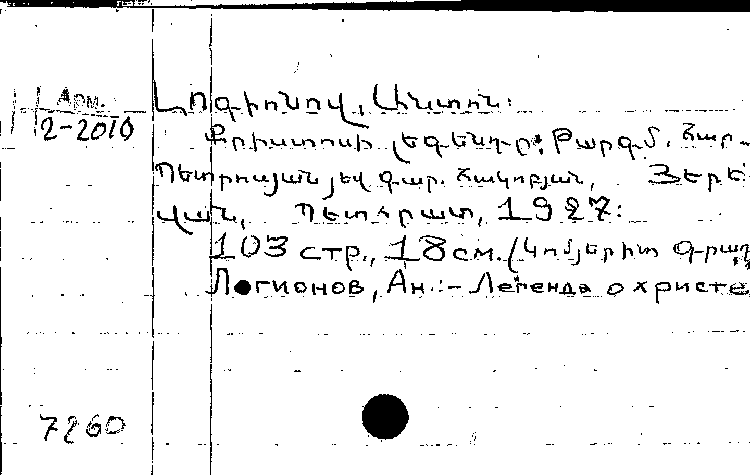 Арм.
2-2010
Լոգիոնով, Անտոն:
Քրիստոսի լեգենդը: Թարգմ. Ճար.
Պետրոսյան յեվ գար. Հակոբյան, Յերե
վան, Պետհրատ, 1927:
103 стр., 18 см. (կոմյերիտ գրադ
Логионов, Ан.:- Легенда о христе
7260